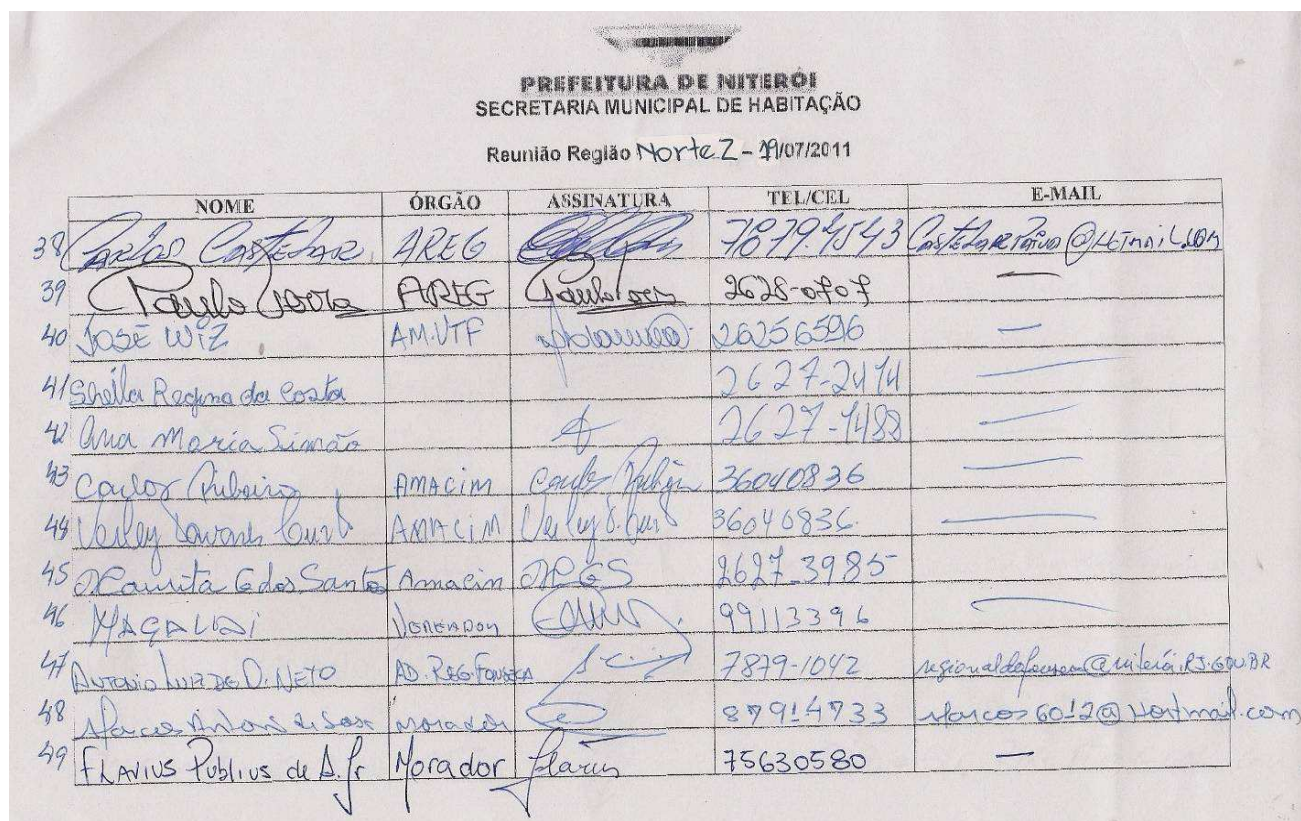 PREFEITURA DE NITERÓI
SECRETARIA MUNICIPAL DE HABITAÇÃO
Reunião Região Norte 2 - 19/07/2011
NOME ÓRGÃO ASSINATURA TEL/CEL E-MAIL
38 Carlos Castelar AREG 7879.4543
39 Paulo AREG Paulo 2628-0707 —
40 JOSÉ WIZ AM.VTF 26256596 —
41 Sheila Regina da Costa 2627-2474 —
42 Ana Maria Simão 2627-1488 —
43 Carlos Ribeiro AMACIM Carlos Ribeiro 36040836 —
44 AMACIM 36040836 —
45 G dos Santos Amacim 2627-3985
46 MAGALDI VEREADOR 99113396 —
47 ANTONIO LUIZ DE D. NETO AD. REG. FONSECA 7879-1042
48 Marcos Antonio de Morador 87914733 Marcos6012@Hotmail.com
49 FLAVIUS Publius de A. Jr Morador Flavius 75630580 —